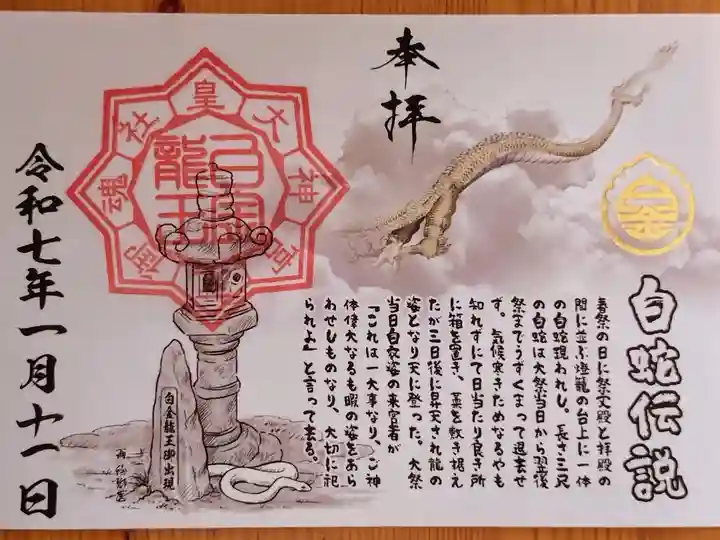 奉拝
白金
白蛇伝説
春祭の日に祭文殿と拝殿の
間に並ぶ燈籠の台上に一体
の白蛇現われし。長さ三尺
の白蛇は大祭当日から翌後
祭までうずくまって退去せ
ず。気候寒きためなるやも
知れずにて日当たり良き所
に箱を置き、藁を敷き据え
たが三日後に昇天され龍の
姿となり天に登った。大祭
当日白衣姿の来宮者が
「これは一大事なり、ご神
体偉大なるも暇の姿をあら
わせしものなり、大切に祀
られよ」と言って去る。
大神
高
御魂社
皇
白金龍王
白金龍王御出現
令和七年一月十一日